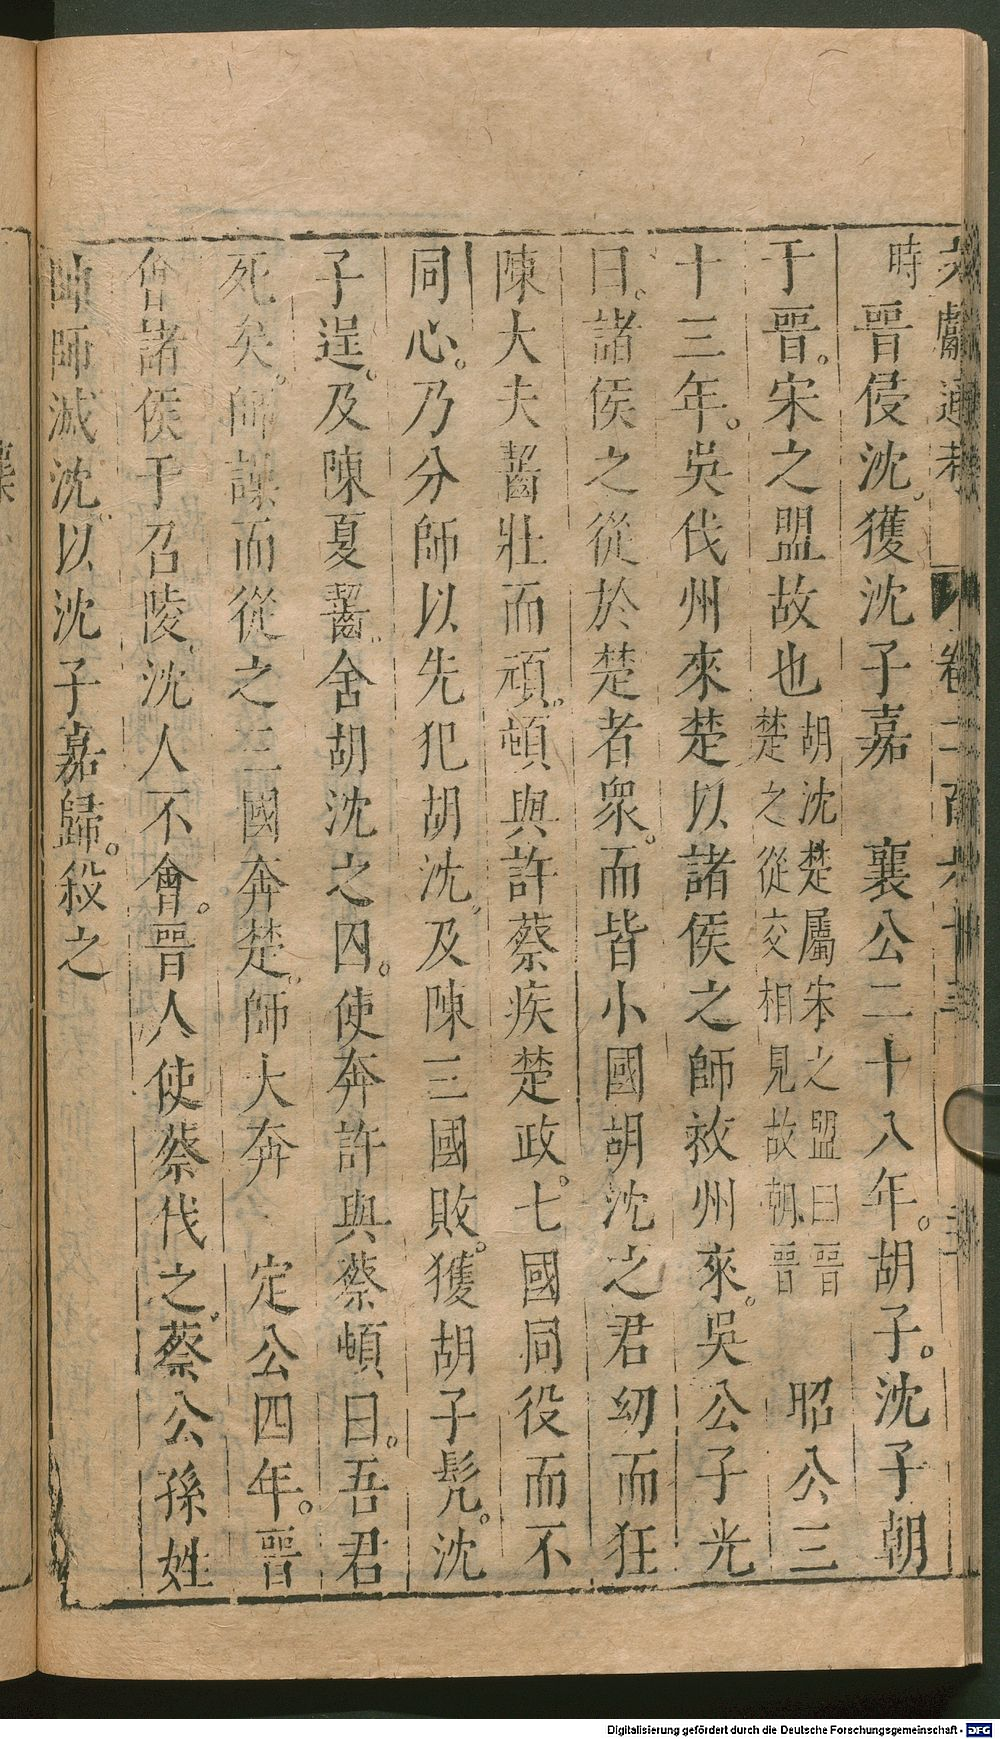 文獻通考 卷二百六十三 三
時 晉侵沈。獲沈子嘉 襄公二十八年。胡子。沈子朝
于晉。宋之盟故也 胡沈楚屬宋之盟曰晉楚之從交相見故朝晉 昭公三
十三年。吳伐州來楚以諸侯之師救州來。吳公子光
曰。諸侯之從於楚者衆。而皆小國胡沈之君幼而狂
陳大夫齧壯而頑。頓與許蔡疾楚政。七國同役而不
同心。乃分師以先犯胡沈。及陳三國敗。獲胡子髠。沈
子逞。及陳夏齧。舍胡沈之囚。使奔許與蔡頓曰。吾君
死矣。師譟而從之三國奔楚。師大奔 定公四年。晉
會諸侯于召陵。沈人不會。晉人使蔡伐之。蔡公孫姓
帥師滅沈。以沈子嘉歸。殺之
Digitalisierung gefördert durch die Deutsche Forschungsgemeinschaft - DFG